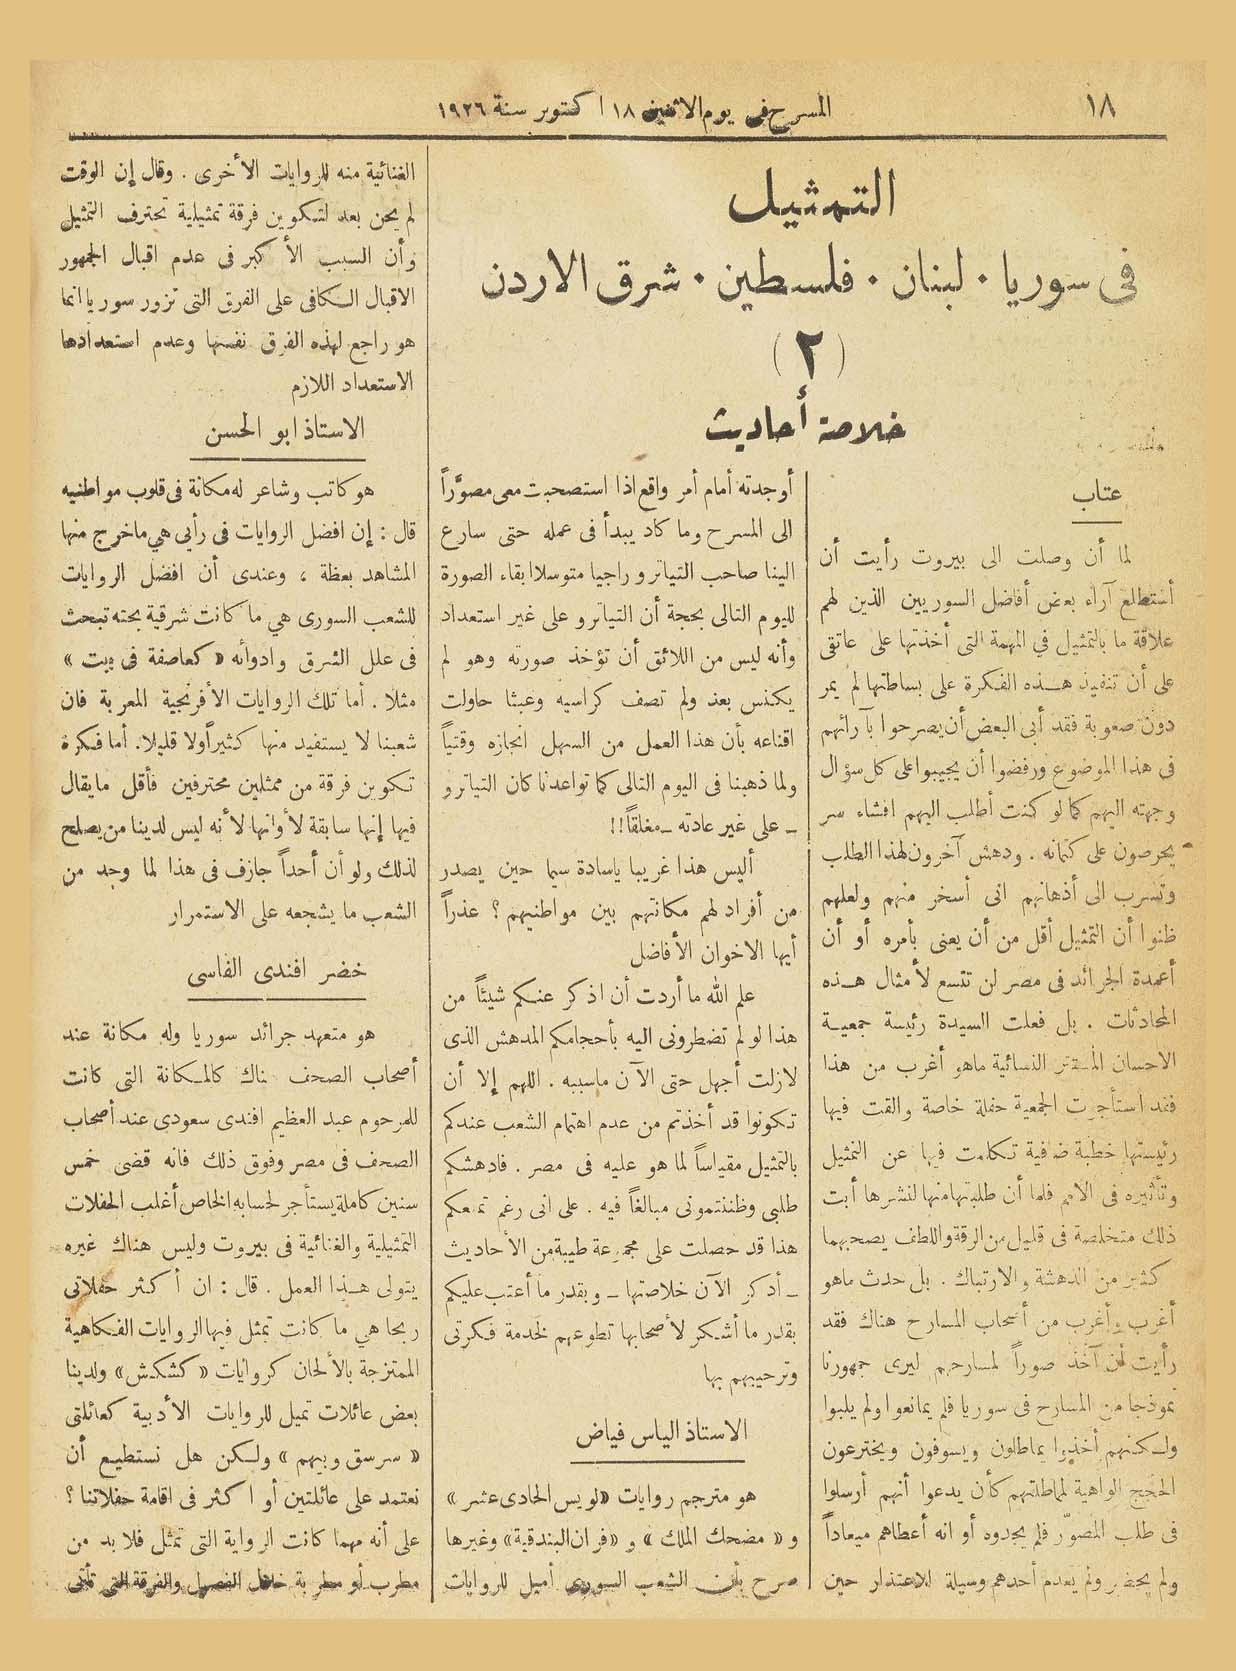 ١٨
المسرح فى يوم الاثنين ١٨ اكتوبر سنة ١٩٢٦
التمثيل
فى سوريا ٠ لبنان ٠ فلسطين ٠ شرق الاردن
(٢)
خلاصة أحاديث
عتاب
لما أن وصلت الى بيروت رأيت أن
أستطلع آراء بعض أفاضل السوريين الذين لهم
علاقة ما بالتمثيل في المهمة التى أخذتها على عاتقى
على أن تنفيذ هذه الفكرة على بساطتها لم يمر
دون صعوبة فقد أبى البعض أن يصرحوا بآرائهم
فى هذا الموضوع ورفضوا أن يجيبوا على كل سؤال
وجهته اليهم كما لو كنت أطلب اليهم افشاء سر
يحرصون على كتمانه . ودهش آخرون لهذا الطلب
وتسرب الى أذهانهم انى أسخر منهم ولعلهم
ظنوا أن التمثيل أقل من أن يعنى بأمره أو أن
أعمدة الجرائد فى مصر لن تتسع لأمثال هذه
المحادثات . بل فعلت السيدة رئيسة جمعية
الاحسان النسائية ماهو أغرب من هذا
فقد استأجرت الجمعية حفلة خاصة والقت فيها
رئيستها خطبة ضافية تكلمت فيها عن التمثيل
وتأثيره فى الامم فلما أن طلبتها منها لنشرها أبت
ذلك متخلصة فى قليل من الرقة واللطف يصحبهما
كثير من الدهشة والارتباك . بل حدث ماهو
أغرب وأغرب من أصحاب المسارح هناك فقد
رأيت أن آخذ صوراً لمسارحهم ليرى جمهورنا
نموذجا من المسارح فى سوريا فلم يمانعوا ولم يلبوا
ولكنهم أخذوا يماطلون ويسوفون ويخترعون
الحجج الواهية لمماطلتهم كأن يدعوا أنهم أرسلوا
فى طلب المصوّر فلم يجدوه أو انه أعطاهم ميعاداً
ولم يحضر ولم يعدم أحدهم وسيلة للاعتذار حين
أوجدته أمام أمر واقع اذا استصحبت معى مصوّراً
الى المسرح وما كاد يبدأ فى عمله حتى سارع
الينا صاحب التياترو راجيا متوسلا ابقاء الصورة
لليوم التالى بحجة أن التياترو على غير استعداد
وأنه ليس من اللائق أن تؤخذ صورته وهو لم
يكنس بعد ولم تصف كراسيه وعبثا حاولت
اقناعه بأن هذا العمل من السهل انجازه وقتياً
ولما ذهبنا فى اليوم التالى كما تواعدنا كان التياترو
ـ على غير عادته ـ مغلقاً!!
أليس هذا غريبا ياسادة سيما حين يصدر
من أفراد لهم مكانتهم بين مواطنيهم ؟ عذراً
أيها الاخوان الأفاضل
علم الله ما أردت أن اذكر عنكم شيئاً من
هذا لو لم تضطرونى اليه بأحجامكم المدهش الذى
لازلت أجهل حتى الآن ماسببه . اللهم إلا أن
تكونوا قد أخذتم من عدم اهتمام الشعب عندكم
بالتمثيل مقياساً لما هو عليه فى مصر . فادهشكم
طلبى وظننتمونى مبالغاً فيه . على انى رغم تمنعكم
هذا قد حصلت على مجموعة طيبة من الأحاديث
ـ أذكر الآن خلاصتها ـ وبقدر ما أعتب عليكم
بقدر ما أشكر لأصحابها تطوعهم لخدمة فكرتى
وترحيبهم بها
الاستاذ الياس فياض
هو مترجم روايات «لويس الحادى عشر»
و « مضحك الملك » و «قران البندقية» وغيرها
صرح بأن الشعب السورى أميل للروايات
الغنائية منه للروايات الأخرى . وقال إن الوقت
لم يحن بعد لتكوين فرقة تمثيلية تحترف التمثيل
وأن السبب الأكبر فى عدم اقبال الجمهور
الاقبال الكافى على الفرق التى تزور سوريا انما
هو راجع لهذه الفرق نفسها وعدم استعدادها
الاستعداد اللازم
الاستاذ ابو الحسن
هو كاتب وشاعر له مكانة فى قلوب مواطنيه
قال : إن افضل الروايات فى رأيي هي ماخرج منها
المشاهد بعظة ، وعندى أن افضل الروايات
للشعب السورى هي ما كانت شرقية بحته تبحث
فى علل الشرق وادوائه «كعاصفة فى بيت»
مثلا . أما تلك الروايات الأفرنجية المعربة فان
شعبنا لا يستفيد منها كثيراً ولا قليلا. أما فكرة
تكوين فرقة من ممثلين محترفين فأقل مايقال
فيها إنها سابقة لأوانها لأنه ليس لدينا من يصلح
لذلك ولو أن أحداً جازف فى هذا لما وجد من
الشعب ما يشجعه على الاستمرار
خضر افندى الفاسى
هو متعهد جرائد سوريا وله مكانة عند
أصحاب الصحف هناك كالمكانة التى كانت
للمرحوم عبد العظيم افندى سعودى عند أصحاب
الصحف فى مصر وفوق ذلك فانه قضى خمس
سنين كاملة يستأجر لحسابه الخاص أغلب الحفلات
التمثيلية والغنائية فى بيروت وليس هناك غيره
يتولى هذا العمل . قال : ان أكثر حفلاتى
ربحا هي ما كانت تمثل فيها الروايات الفكاهية
الممتزجة بالألحان كروايات «كشكش» ولدينا
بعض عائلات تميل للروايات الأدبية كعائلتى
« سرسق وبيهم » ولكن هل نستطيع أن
نعتمد على عائلتين أو اكثر فى اقامة حفلاتنا ؟
على أنه مهما كانت الرواية التى تمثل فلا بد من
مطرب أو مطربة خلال الفصول والفرقة التى تأتى